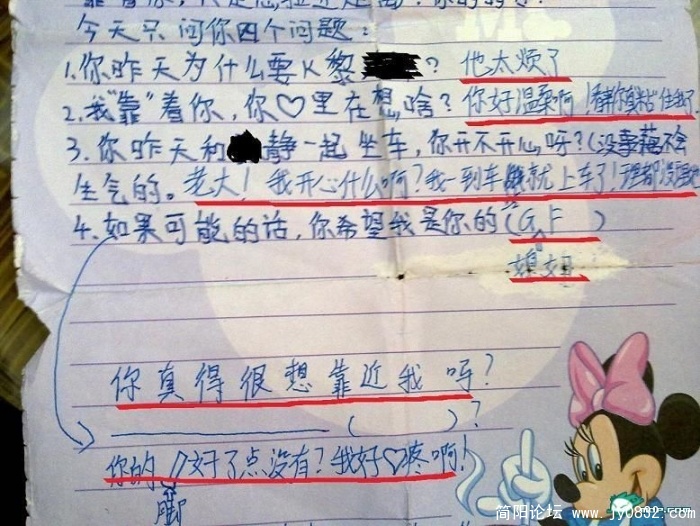 今天只问你四个问题:
1.你昨天为什么要K黎? 他太烦了
2.我"靠"着你,你♡里在想啥? 你好温柔啊!
3.你昨天和静一起坐车,你开不开心呀?(没事 不会
生气的。老大!我开心什么啊?我一到车 就上车了!理都没
4.如果可能的话,你希望我是你的(G.F )
媳妇
你真得很想靠近我呀?
( )?
你的 好了点没有?我好♡疼啊!
脚
简阳论坛 www.jy0832.com